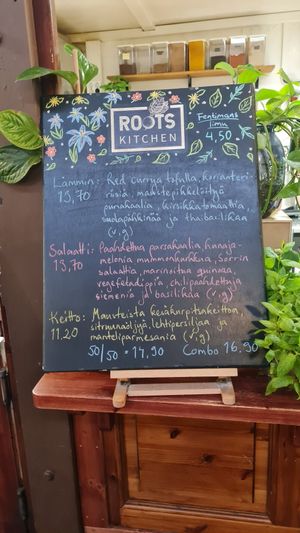 ROOTS
KITCHEN
Fentimans
limu
4,50
Lämmin: Red currya tofulla, korianteri-
13,70 riisiä, maustepikkelöityä
punakaalia, kirsikkatomaattia,
cashewpähkinää ja thaibasilikaa
(v,g)
Salaatti: Paahdettua parsakaalia, hunaja-
13,70 melonia, mummonkurkkua, Sorrin
salaattia, marinoitua quinoaa,
vegefetadippiä, chilipaahdettuja
siemeniä ja basilikaa (v,g)
Keitto: Mausteista kesäkurpitsakeittoa,
11.20 sitruunaöljyä, lehtipersiljaa ja
manteliparmesania (v,g)
50/50 • 14,90 Combo 16.90